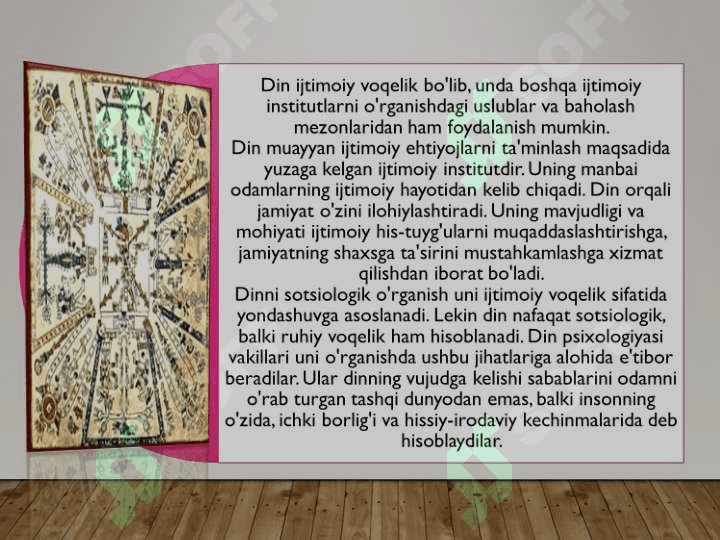 Din ijtimoiy voqelik bo'lib, unda boshqa ijtimoiy
institutlarni o'rganishdagi uslublar va baholash
mezonlaridan ham foydalanish mumkin.
Din muayyan ijtimoiy ehtiyojlarni ta'minlash maqsadida
yuzaga kelgan ijtimoiy institutdir. Uning manbai
odamlarning ijtimoiy hayotidan kelib chiqadi. Din orqali
jamiyat o'zini ilohiylashtiradi. Uning mavjudligi va
mohiyati ijtimoiy his-tuyg'ularni muqaddaslashtirishga,
jamiyatning shaxsga ta'sirini mustahkamlashga xizmat
qilishdan iborat bo'ladi.
Dinni sotsiologik o'rganish uni ijtimoiy voqelik sifatida
yondashuvga asoslanadi. Lekin din nafaqat sotsiologik,
balki ruhiy voqelik ham hisoblanadi. Din psixologiyasi
vakillari uni o'rganishda ushbu jihatlariga alohida e'tibor
beradilar. Ular dinning vujudga kelishi sabablarini odamni
o'rab turgan tashqi dunyodan emas, balki insonning
o'zida, ichki borlig'i va hissiy-irodaviy kechinmalarida deb
hisoblaydilar.
SOFF
SOFF
SOFF
SOFF